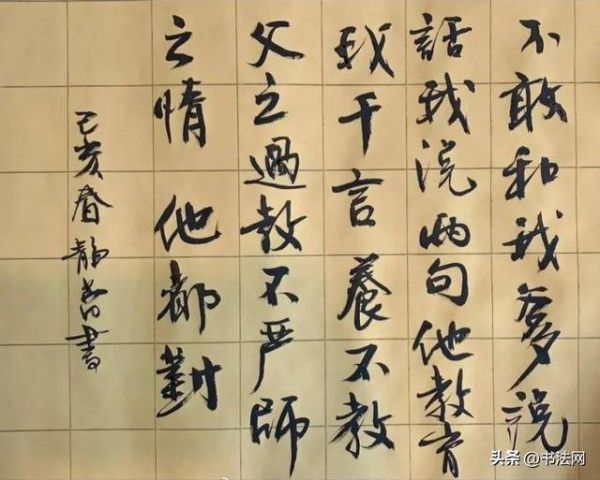 不敢和我爹说
話我说兩句他教育
我千言養不教
父之過教不严師
之情 他都對
己亥春靜書
头条 @书法网